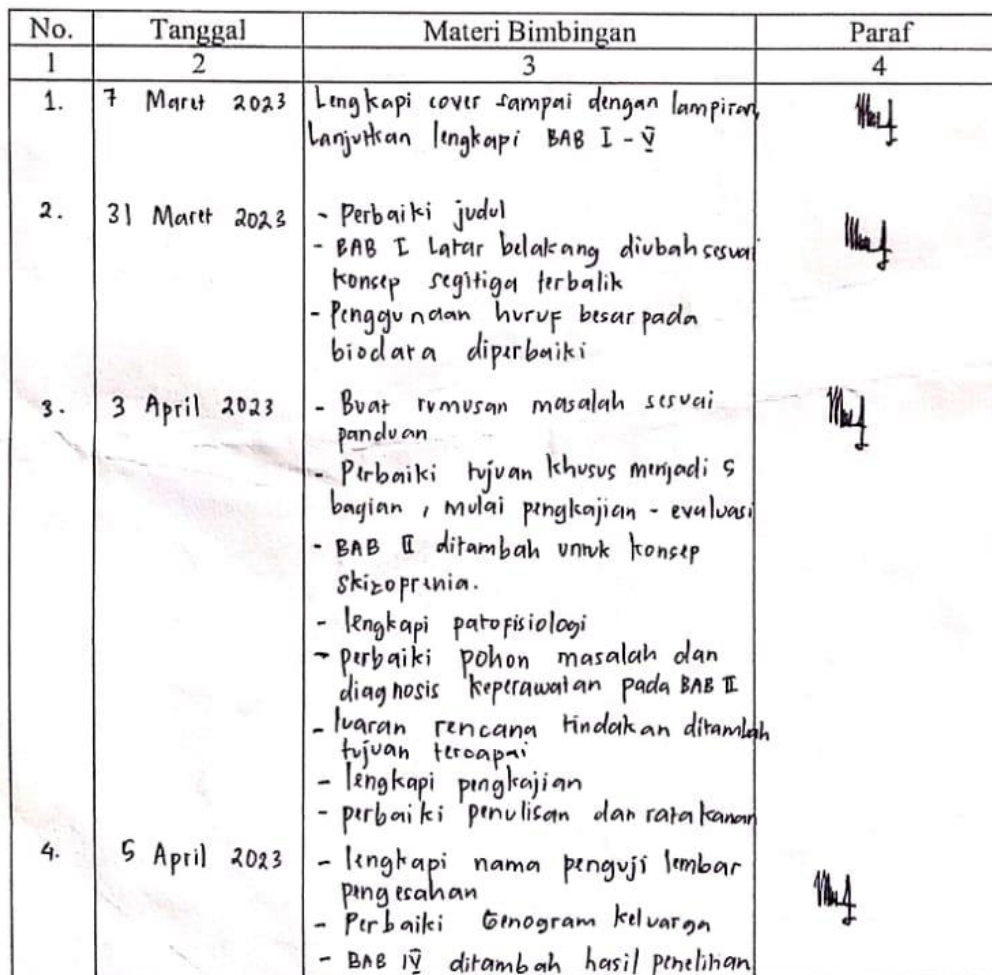 No. Tanggal Materi Bimbingan Paraf
1 2 3 4
1. 7 Maret 2023 Lengkapi cover sampai dengan lampiran,
Lanjutkan lengkapi BAB I - V
2. 31 Maret 2023 - Perbaiki judul
- BAB I Latar belakang diubah sesuai
konsep segitiga terbalik
- Penggunaan huruf besar pada
biodata diperbaiki
3. 3 April 2023 - Buat rumusan masalah sesuai
panduan
- Perbaiki tujuan khusus menjadi 5
bagian, mulai pengkajian - evaluasi
- BAB II ditambah untuk konsep
skizoprenia.
- lengkapi patofisiologi
- perbaiki pohon masalah dan
diagnosis keperawatan pada BAB II
- luaran rencana tindakan ditambah
tujuan tercapai
- lengkapi pengkajian
- perbaiki penulisan dan rata kanan
4. 5 April 2023 - lengkapi nama penguji lembar
pengesahan
- Perbaiki Genogram keluarga
- BAB IV ditambah hasil penelitian